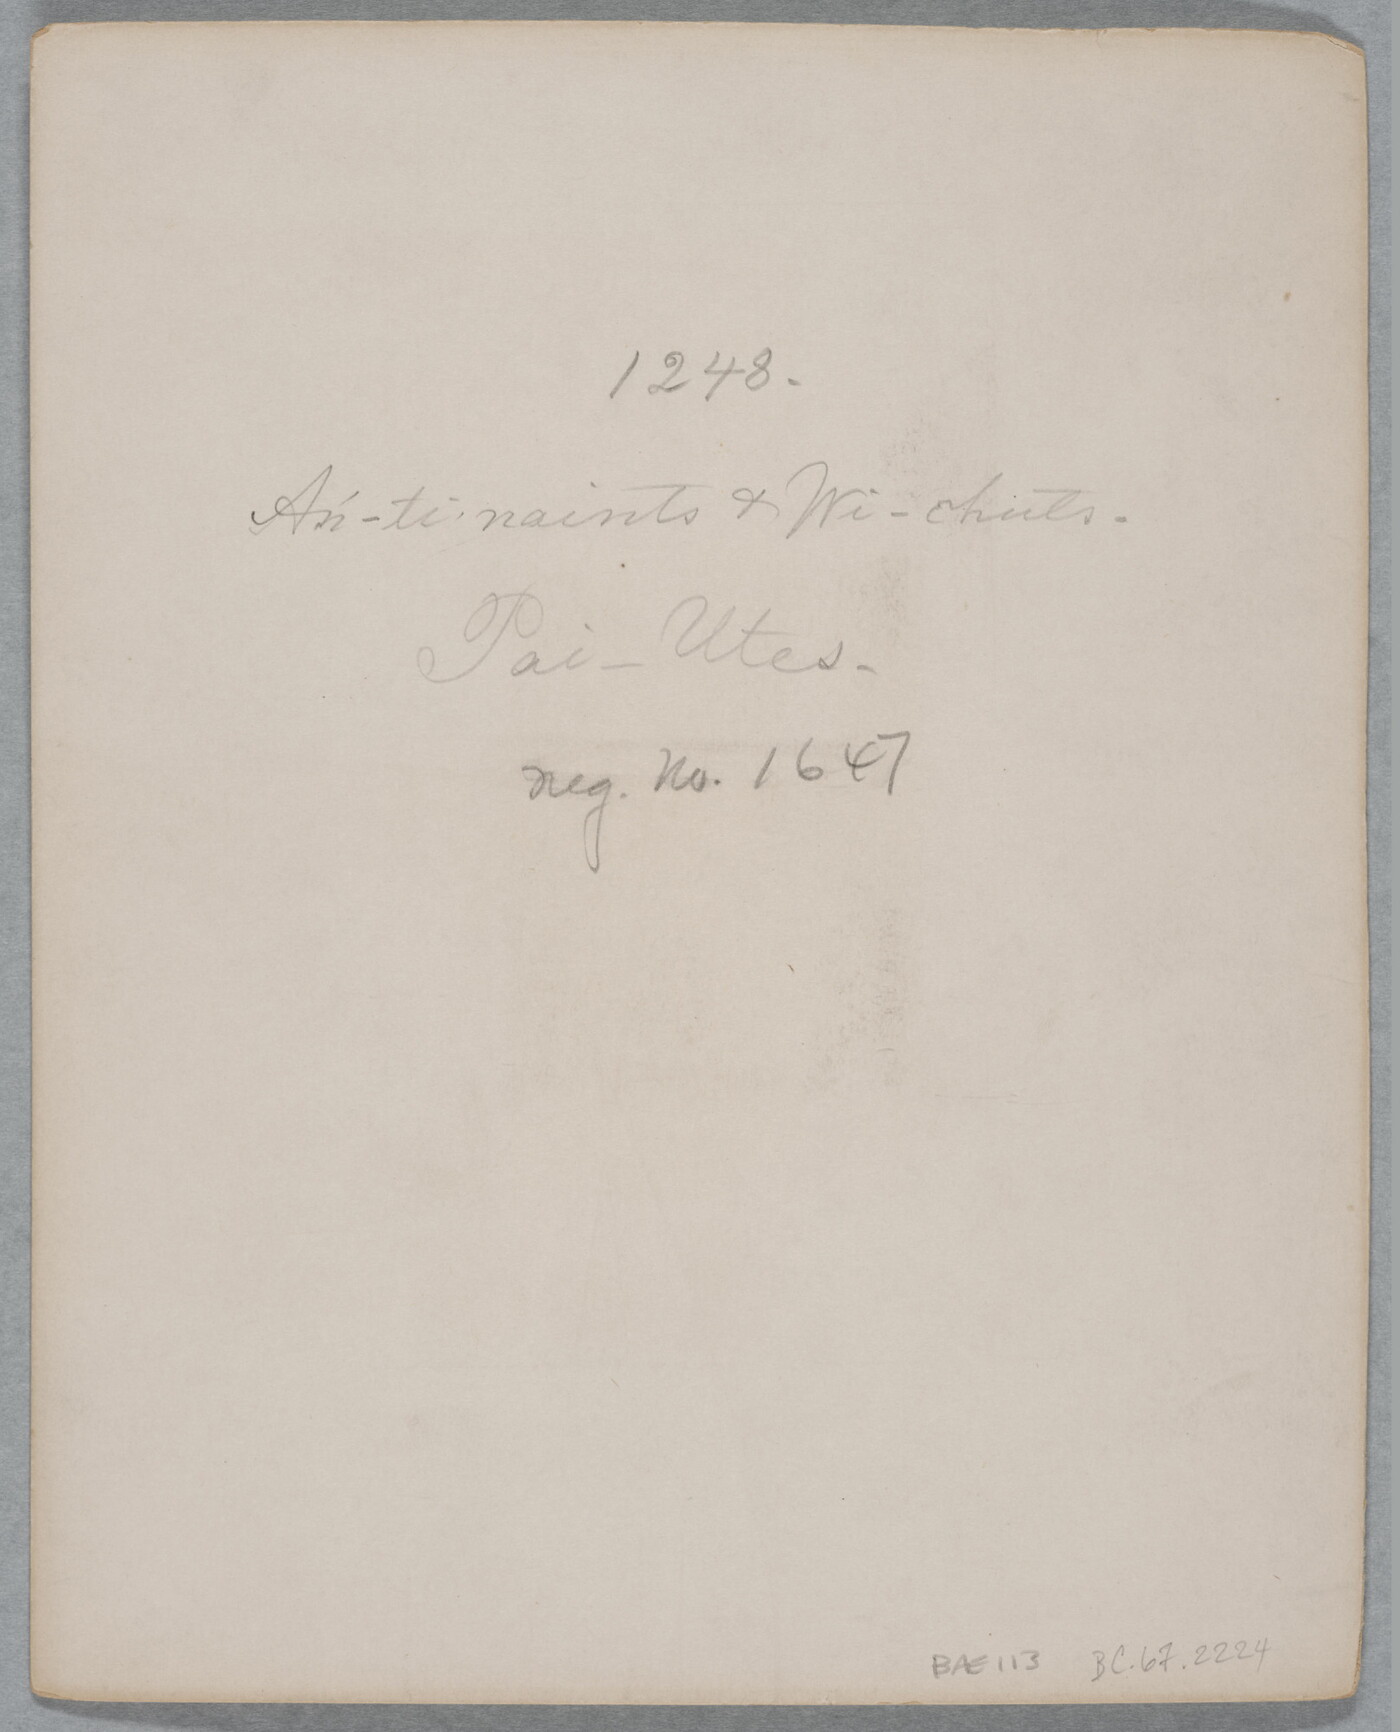 1248.
Añ-ti-naints & Wi-chuts.
Pai-Utes.
neg. No. 1647
BAE 113 BC.67.2224